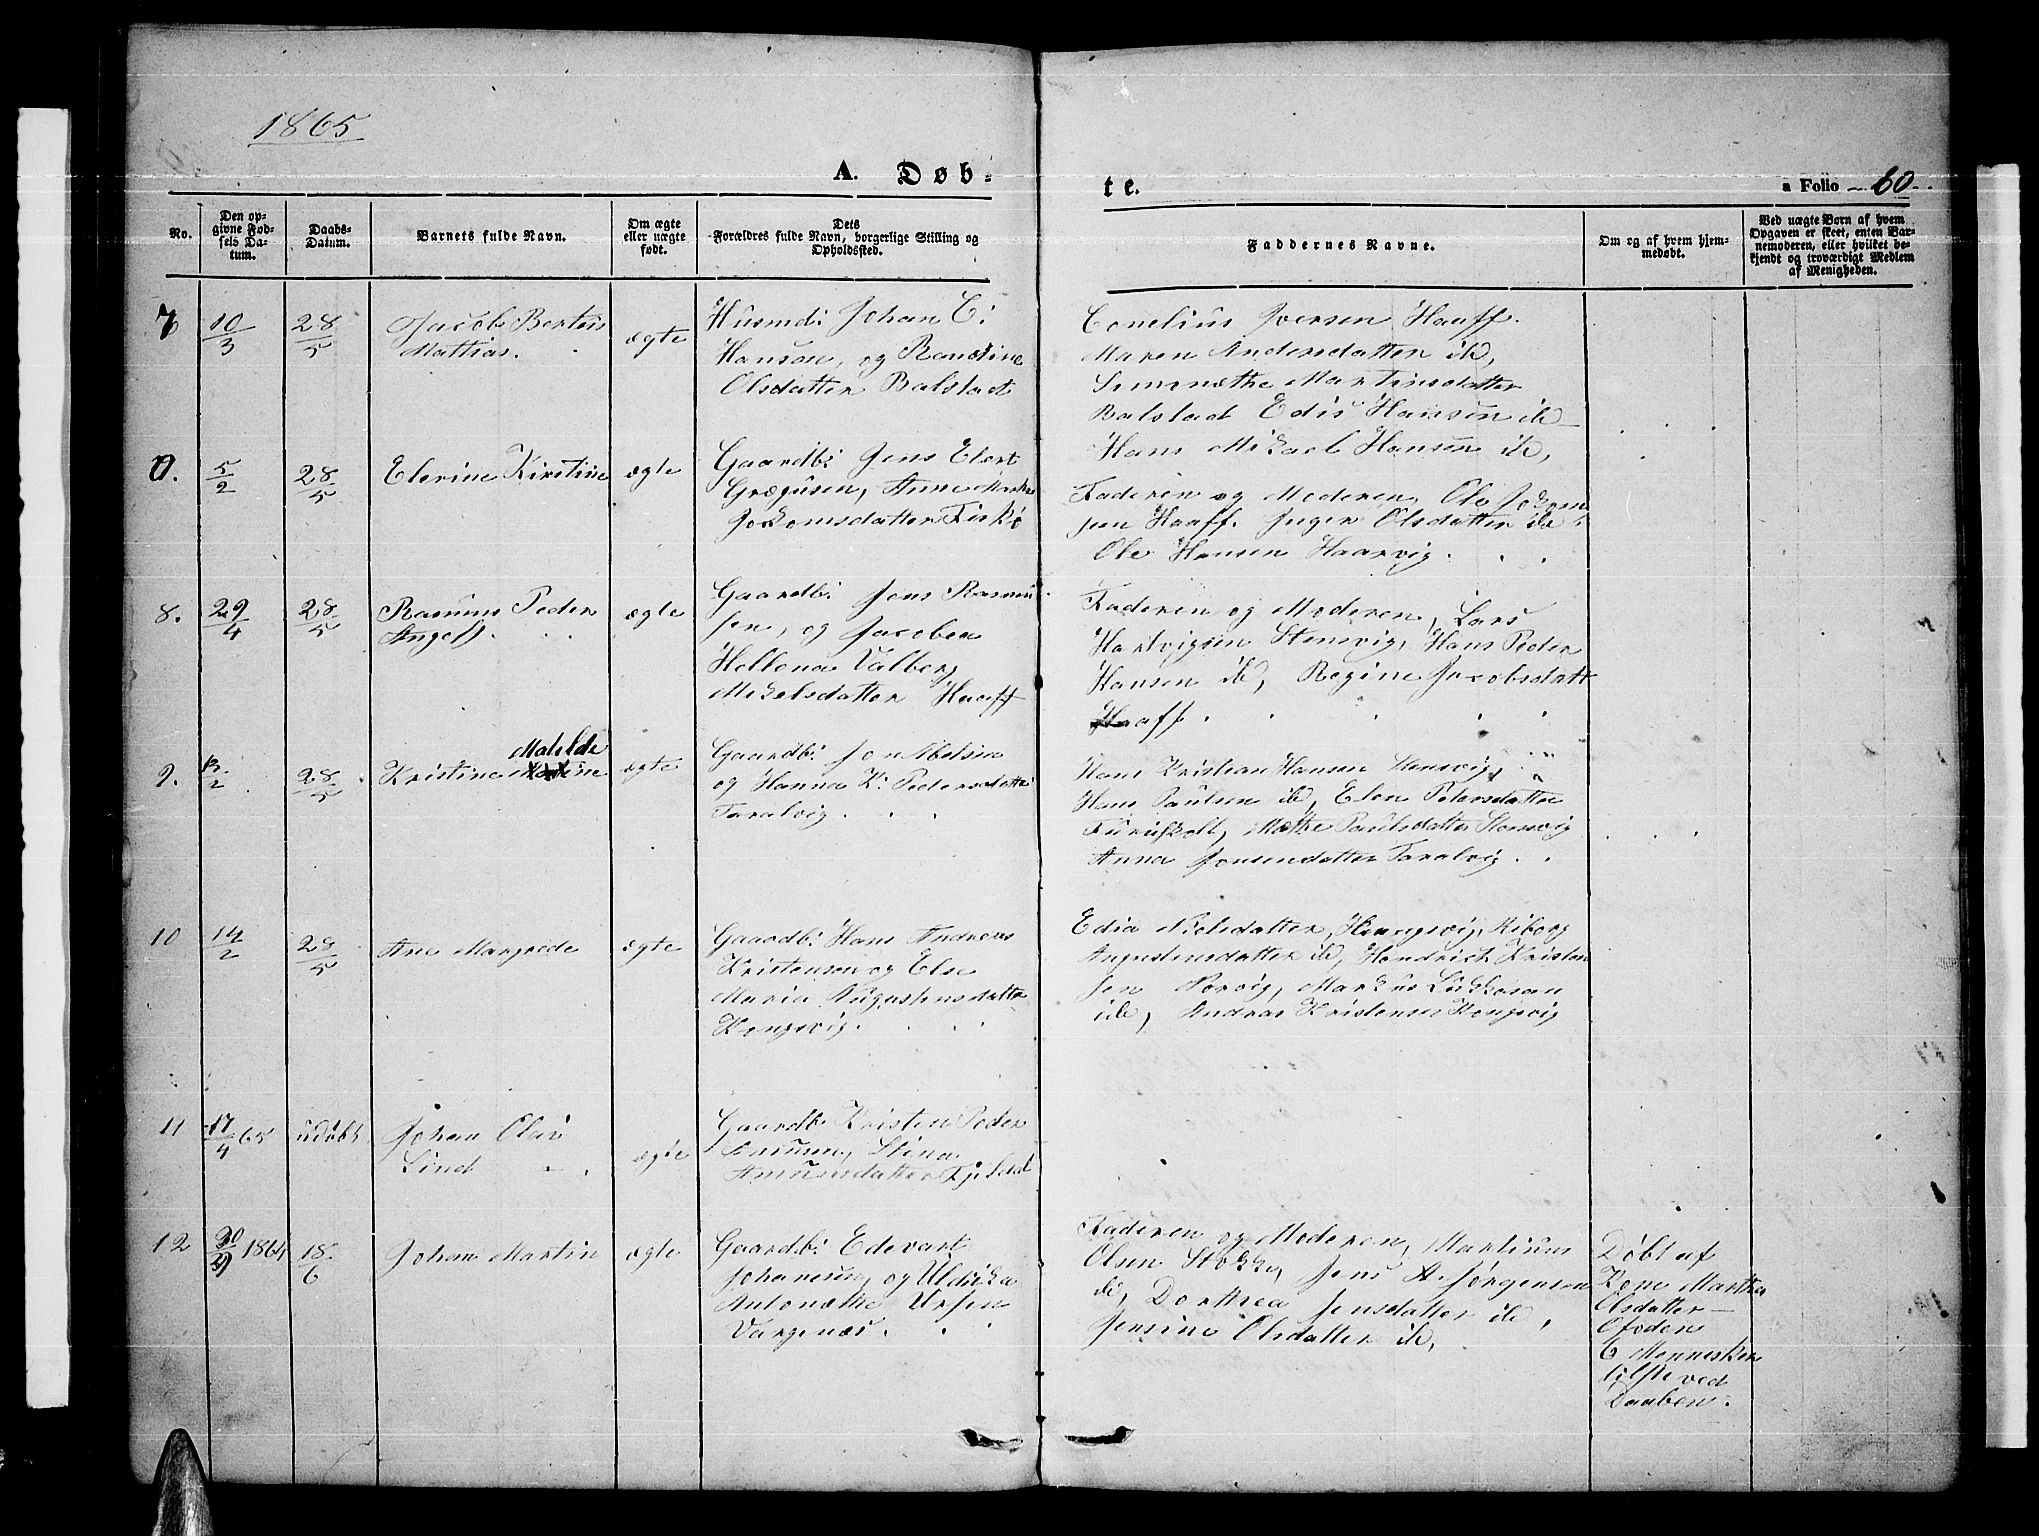 1865
A. Døb-
te.
a Folio 60
No.
Den op-
givne Fød-
sels Da-
tum.
Daabs-
Datum.
Barnets fulde Navn.
Om ægte
eller uægte
født.
Dets
Forældres fulde Navn, borgerlige Stilling og
Opholdssted.
Faddernes Navne.
Om og af hvem hjem-
medøbt.
Ved uægte Børn af hvem
Opgaven er skeet, enten Bar-
nemoderen, eller hvilket be-
kjendt og troværdigt Medlem
af Menigheden.
7 10/3 28/5 Jacob Berteus
Mattias.
ægte
Husmd: Johan C:
Hanson, og
Olsdatter Balstad
Conelius Iversen Haaff.
Maren Andersdatter ib,
Simonæthe Martinsdatter
Balstad Edis Hansen ib
Hans Mikael Hansen ib,
0. 5/2 28/5 Elerine Kirstine ægte
Gaardb: Jens Elert
Grægusen, Anne
Jokomsdatter Fiskø
Faderen og Moderen, Ole
sen Haaff. Inger Olsdatter ib
Ole Hansen Haarvig.
8. 29/4 28/5 Rasmus Peder
Angell.
ægte
Gaardb: Jens Rasmu-
sen, og Jacoben
Hellena Valborg
Mikelsdatter Haaff
Faderen og Moderen, Lars
Hartvigsen Stensvig, Hans Peder
Hansen ib, Regine Jacobsdatt
Haaff.
9. 28/5 Kristine Matilde
ægte
Gaardb: Jon Abelsen
og Hanna K: Pedersdatter
Taralvig.
Hans Kristian Hansen Stensvig,
Hans Paulsen ib, Elen Petersdatter
Mæthe Paulsdatter Stensvig
Anna Jonsendatter Taralvig.
10 14/2 28/5 Ane Margrede ægte
Gaardb: Hans Andreas
Kristensen og Else
Maria Augustinsdatter
Kongsvig.
Edia Nielsdatter, Kongsvig, Riborg
Augustensdatter ib, Hendrich Kristen
sen Markus
ib, Andreas Kristensen Kongsvig
11 17/4 65 udøbt Johan Olai
Lind
ægte
Gaardb: Kristen Peder
Stina
12 30/9 1864 18/6 Johan Martin ægte
Gaardb: Edevart
Johanesen, og Uldrika
Antonætte Ursin
Vargenæs.
Faderen og Moderen, Martinus
Olsen Stokke, Jens A. Jørgensen
ib, Dorthea Jensdatter ib,
Jensine Olsdatter ib,
Døbt af
Kone Martha
Olsdatter
Ofoden
6 Mennesker
tilste ved
Daaben.